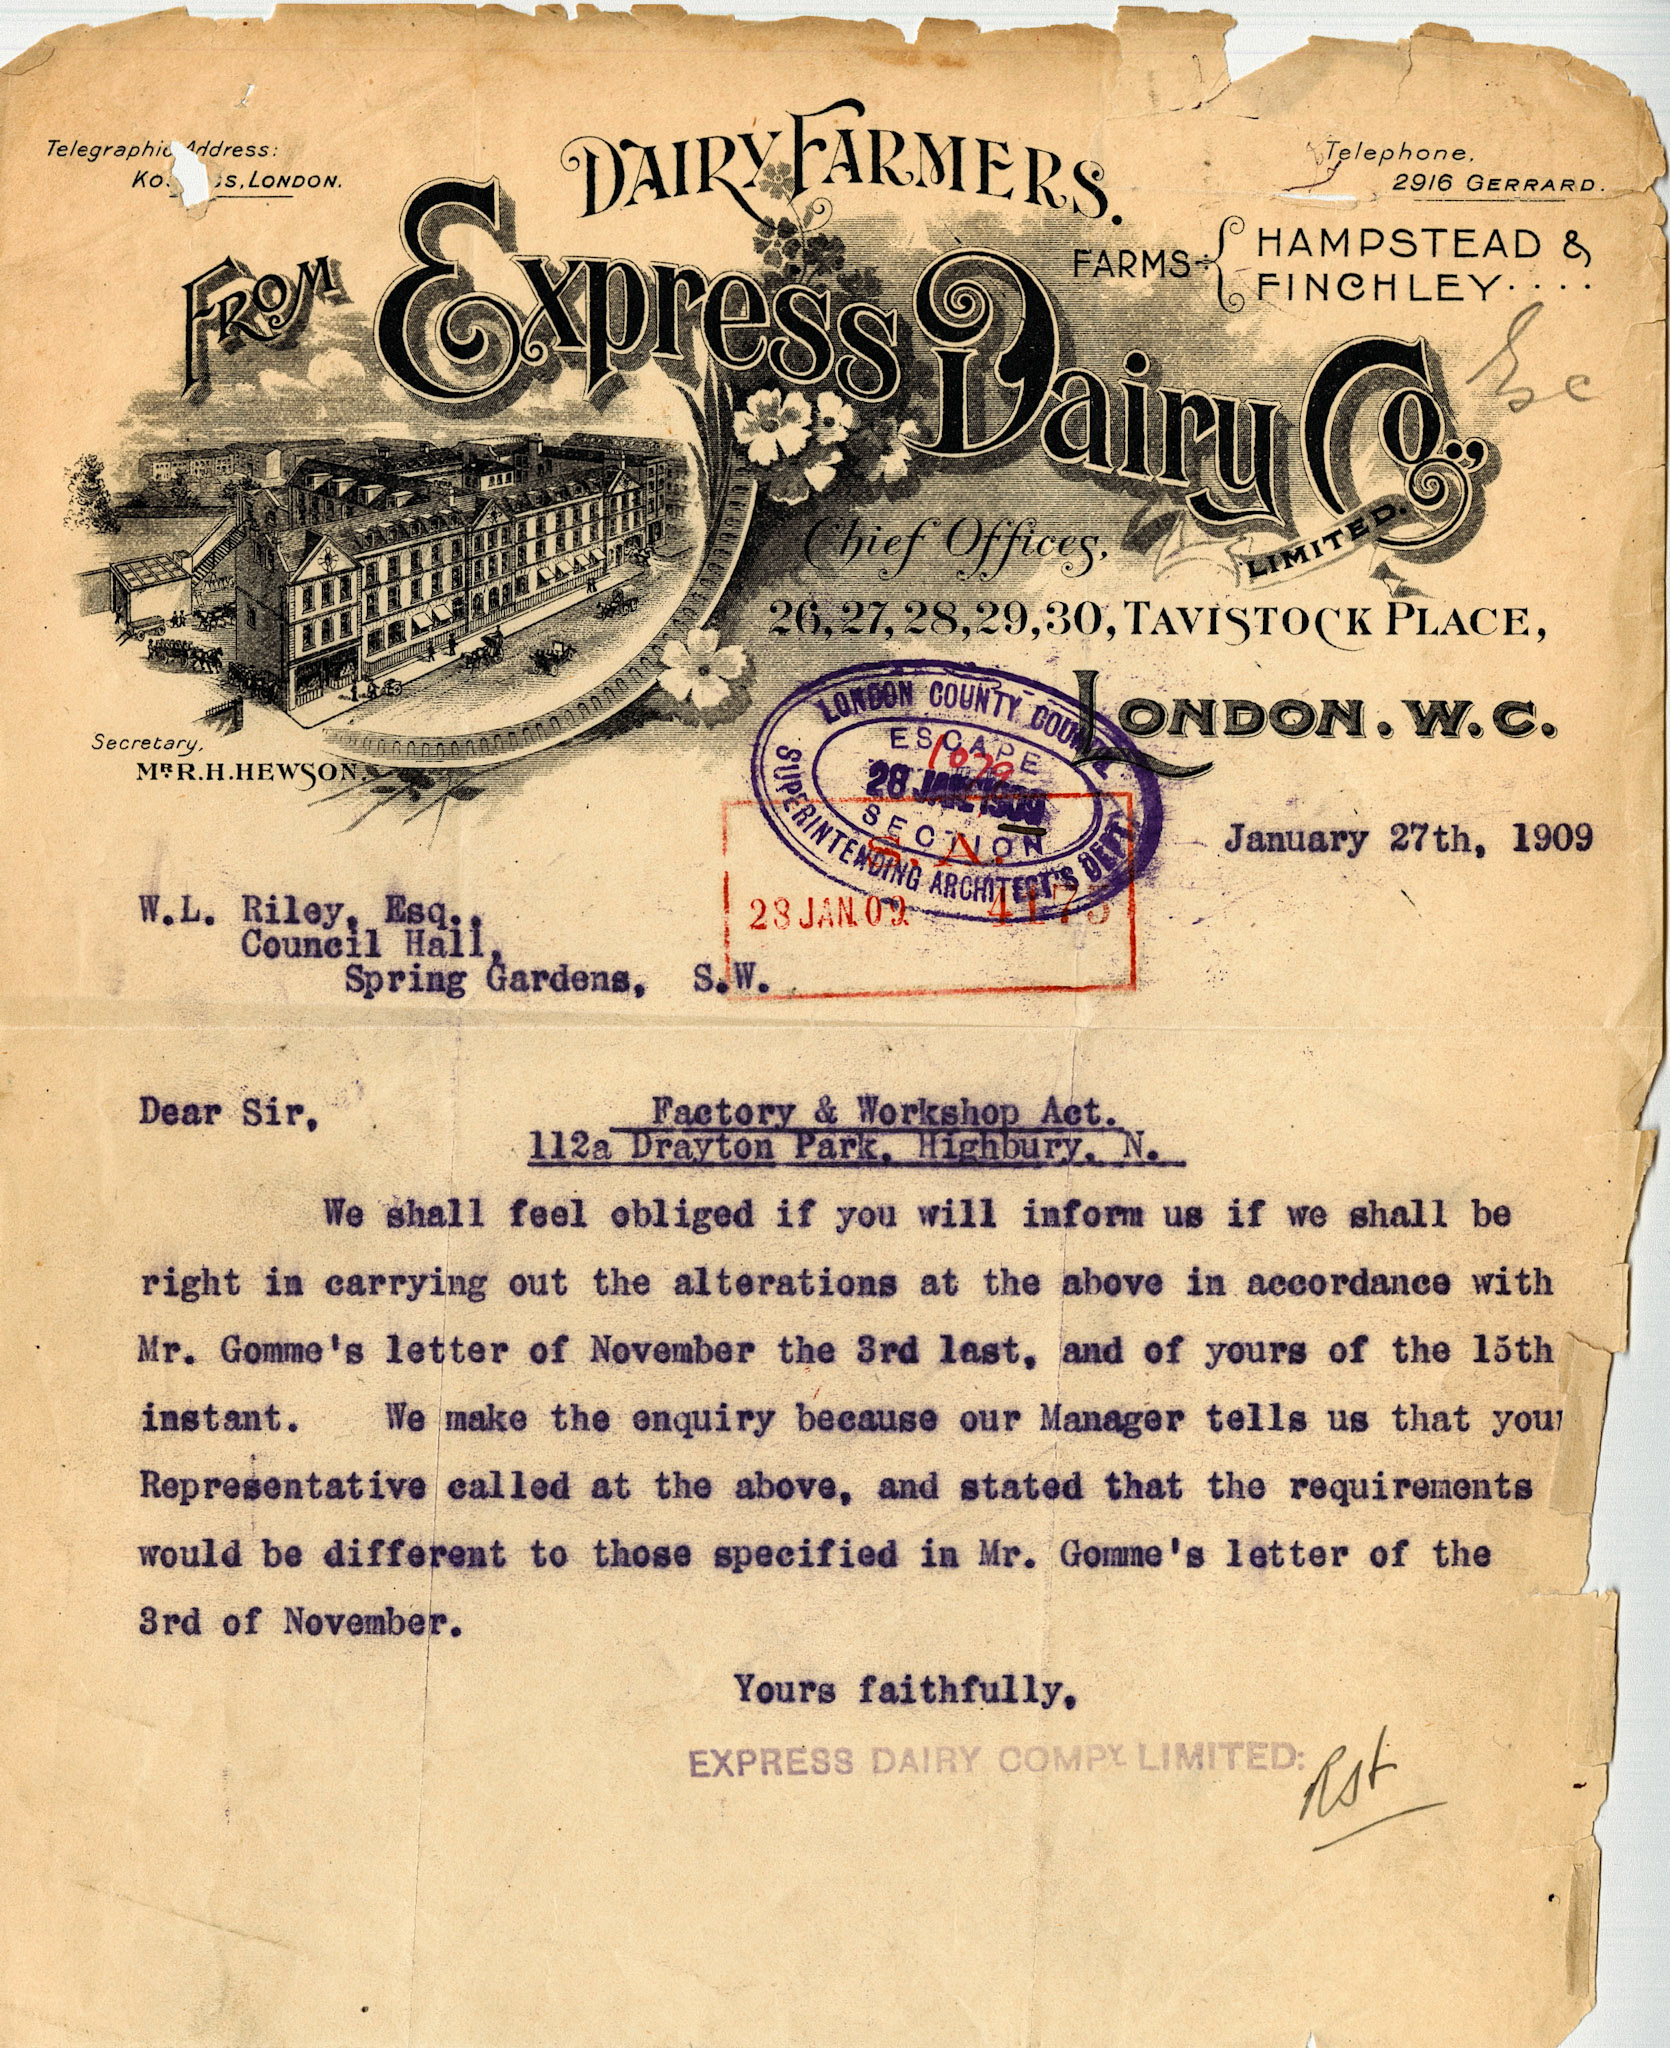 Telegraphic Address:
LONDON.
Telephone,
2916 GERRARD.
DAIRY FARMERS.
FARMS
HAMPSTEAD &
FINCHLEY....
FROM
Express Dairy Co.,
LIMITED.
Chief Offices,
26, 27, 28, 29, 30, TAVISTOCK PLACE,
LONDON. W.C.
Secretary,
MR R. H. HEWSON.
LONDON COUNTY COUNCIL
ESCAPE
1079
28 JAN 1909
SECTION
SUPERINTENDING ARCHITECT'S DEPT
S. A.
28 JAN. 09 4175
January 27th, 1909
W.L. Riley, Esq.,
Council Hall,
Spring Gardens, S.W.
Dear Sir,
Factory & Workshop Act.
112a Drayton Park, Highbury, N.
We shall feel obliged if you will inform us if we shall be
right in carrying out the alterations at the above in accordance with
Mr. Gomme's letter of November the 3rd last, and of yours of the 15th
instant. We make the enquiry because our Manager tells us that your
Representative called at the above, and stated that the requirements
would be different to those specified in Mr. Gomme's letter of the
3rd of November.
Yours faithfully,
EXPRESS DAIRY COMPY. LIMITED: